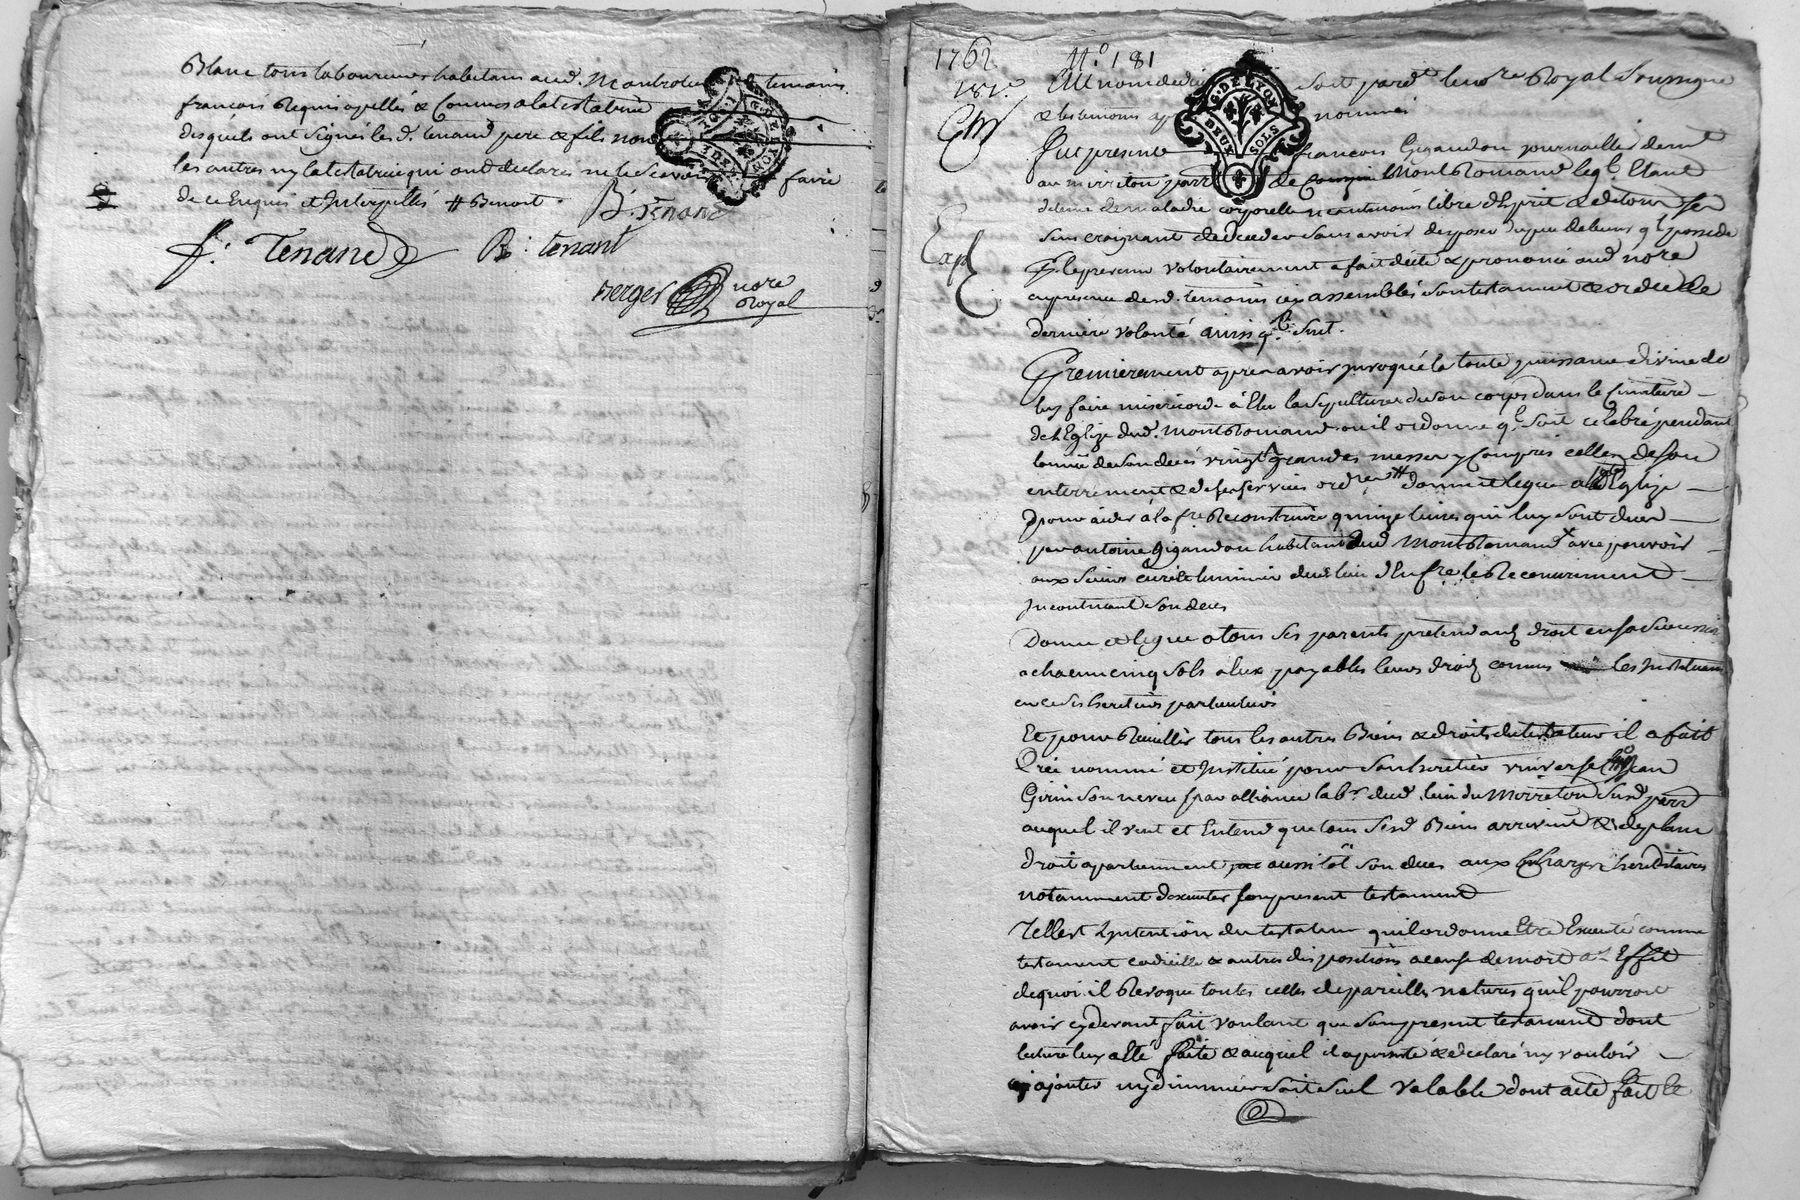 Blanc tous laboureurs habitans aud. Montrotier temoins
francois Requis apellés & Connus a la testatrice
desquels ont signé les d. tenand pere & fils non
les autres ny la testatrice qui ont declarés ne le scavoir faire
de ce Enquis et Interpellés # Benoit
B. Tenand
f. Tenand B: tenant
Berger nore
Royal
1762 N.o 181
181.e Au nom de dieu soit par d.t le nore Royal Soussigné
& les temoins ap nommés
G. DE LYON
DEUX SOLS
Exp.
Fut present francois Gigandon journallier dem.t
au mirreton parr de Montromand leq.l Etant
detenu de maladie corporelle neantmoins libre d'Esprit & de tous ses
sens craignant de deceder sans avoir disposé du peu de biens q.l possede
Et le prevenir volontairement a fait dicté & prononcé aud nore
en presence desd. temoins icy assemblés son testament & ordce de
derniere volonté ainsi q.l suit.
Premierement apres avoir invoqué la toute puissance divine de
luy faire misericorde a Elu la sepulture de son corps dans le Cimitiere
de l'Eglize dud. Montromand ou il ordonne q.l soit celebré pendant
l'année de son deces vingt grandes messes y Compris celles de son
enterrement & de ses services ord.res # donne et legue a lad Eglize
pour aider a la fre Reconstruire quinze livres qui luy sont dues
par antoine Gigandon habitant dud Montromand avec pouvoir
aux Sieurs curé & luminier dud lieu d'En fre le Recouvrement
Incontinant son deces
Donne et legue a tous ses parents pretendants droit en sa succession
a chacun cinq sols a Eux payables leurs droits connus les Instituant
en ce ses heritiers particuliers
Et pour Recuillir tous les autres Biens & droits du testateur il a fait
Créé nommé et Institué pour son heritier universel Jean
Girin son neveu par alliance lab.r dud. lieu du Mirreton susd parr
auquel il veut et Entend que tous sesd Biens arrivent & de plain
droit apartiennent aussitôt son deces aux Charges hereditaires
notamment d'executer son present testament
Telle est L'Intention du testateur qu'il ordonne Etre Executé comme
testament codicille & autres dispositions a cause de mort a l'Effet
de quoi il Revoque toutes celles de pareilles natures qu'il pourroit
avoir cy devant fait voulant que son present testament dont
lecture luy a Eté faite & auquel il a persisté & declaré n'y vouloir
ajouter ny diminuer soit seul valable dont acte fait le